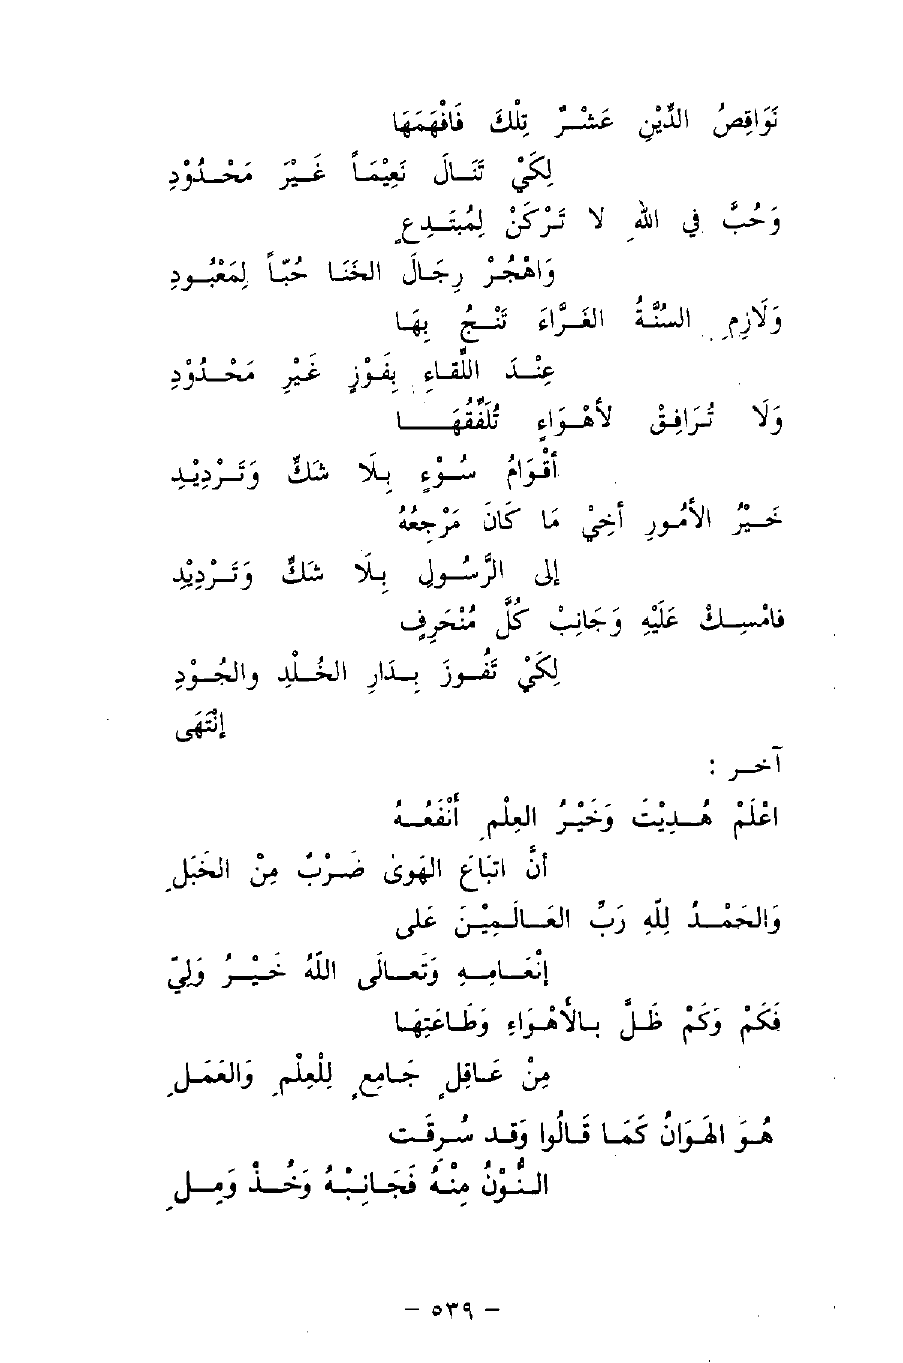 نَوَاقِصُ الدِّيْنِ عَشْرٌ تِلْكَ فَافْهَمَهَا
لِكَيْ تَنَالَ نَعِيْمَاً غَيْرَ مَحْدُوْدِ
وَحُبَّ في اللهِ لا تَرْكَنْ لِمُبْتَدِعٍ
وَاهْجُرْ رِجَالَ الخَنَا حُبّاً لِمَعْبُودِ
وَلَازِمِ السُنَّةُ الغَرَّاءَ تَنْجُ بِهَا
عِنْدَ اللِّقَاءِ بِفَوْزٍ غَيْرِ مَحْدُوْدِ
وَلَا تُرَافِقْ لأَهْوَاءٍ تُلَفِّقُهَا
أَقْوَامُ سُوْءٍ بِلَا شَكٍّ وَتَرْدِيْدِ
خَيْرُ الأُمُورِ أخِيْ مَا كَانَ مَرْجِعُهُ
إلى الرَّسُولِ بِلَا شَكٍّ وَتَرْدِيْدِ
فَامْسِكْ عَلَيْهِ وَجَانِبْ كُلَّ مُنْحَرِفٍ
لِكَيْ تَفُوزَ بِدَارِ الخُلْدِ والجُوْدِ
إنْتَهَى
آخر :
اعْلَمْ هُدِيْتَ وَخَيْرُ العِلْمِ أَنْفَعُهُ
أَنَّ اتبَاعَ الهَوىٰ ضَرْبٌ مِنْ الخَبَلِ
وَالحَمْدُ لِلّهِ رَبِّ العَالَمِيْنَ عَلى
إنْعَامِهِ وَتَعَالَى اللهُ خَيْرُ وَلِيّ
فَكَمْ وَكَمْ ظَلَّ بِالأَهْوَاءِ وَطَاعَتِهَا
مِنْ عَاقِلٍ جَامِعٍ لِلْعِلْمِ وَالعَمَلِ
هُوَ الهَوَانُ كَمَا قَالُوا وَقَد سُرِقَت
النُّوْنُ مِنْهُ فَجَانِبْهُ وَخُذْ وَمِلِ
- ٥٣٩ -